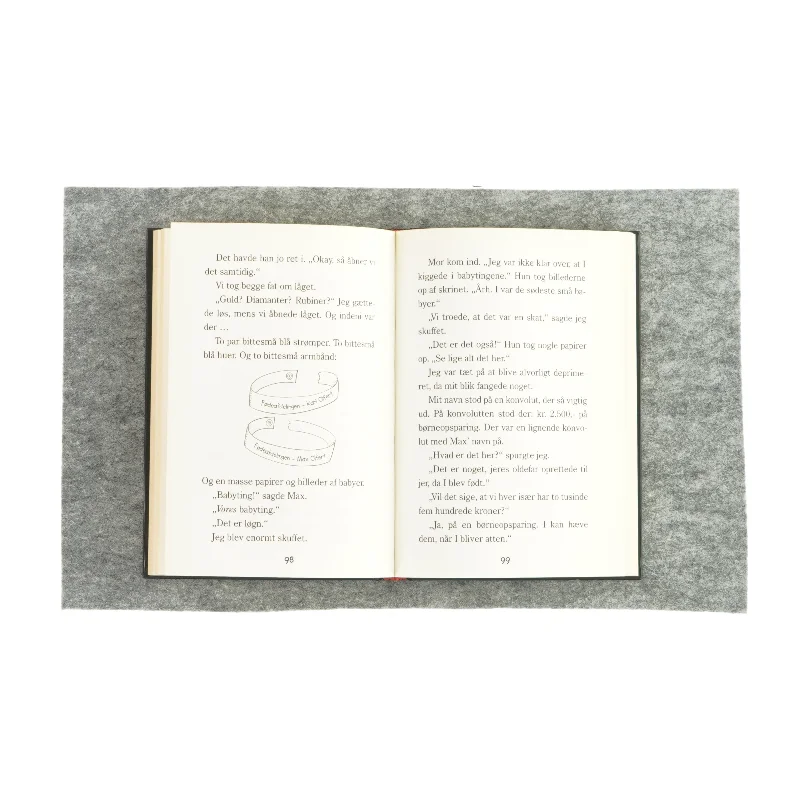 Det havde han jo ret i. „Okay, så åbner vi
det samtidig.“
Vi tog begge fat om låget.
„Guld? Diamanter? Rubiner?“ Jeg gætte-
de løs, mens vi åbnede låget. Og indeni var
der …
To par bittesmå blå strømper. To bittesmå
blå huer. Og to bittesmå armbånd:
Fødeafdelingen –
Fødeafdelingen –
Og en masse papirer og billeder af babyer.
„Babyting!“ sagde Max.
„Vores babyting.“
„Det er løgn.“
Jeg blev enormt skuffet.
98
Mor kom ind. „Jeg var ikke klar over, at I
kiggede i babytingene.“ Hun tog billederne
op af skrinet. „Årh. I var de sødeste små ba-
byer.“
„Vi troede, at det var en skat,“ sagde jeg
skuffet.
„Det er det også!“ Hun tog nogle papirer
op. „Se lige alt det her.“
Jeg var tæt på at blive alvorligt deprime-
ret, da mit blik fangede noget.
Mit navn stod på en konvolut, der så vigtig
ud. På konvolutten stod der: kr. 2.500,- på
børneopsparing. Der var en lignende konvo-
lut med Max’ navn på.
„Hvad er det her?“ spurgte jeg.
„Det er noget, jeres oldefar oprettede til
jer, da I blev født.“
„Vil det sige, at vi hver især har to tusinde
fem hundrede kroner?“
„Ja, på en børneopsparing. I kan hæve
dem, når I bliver atten.“
99